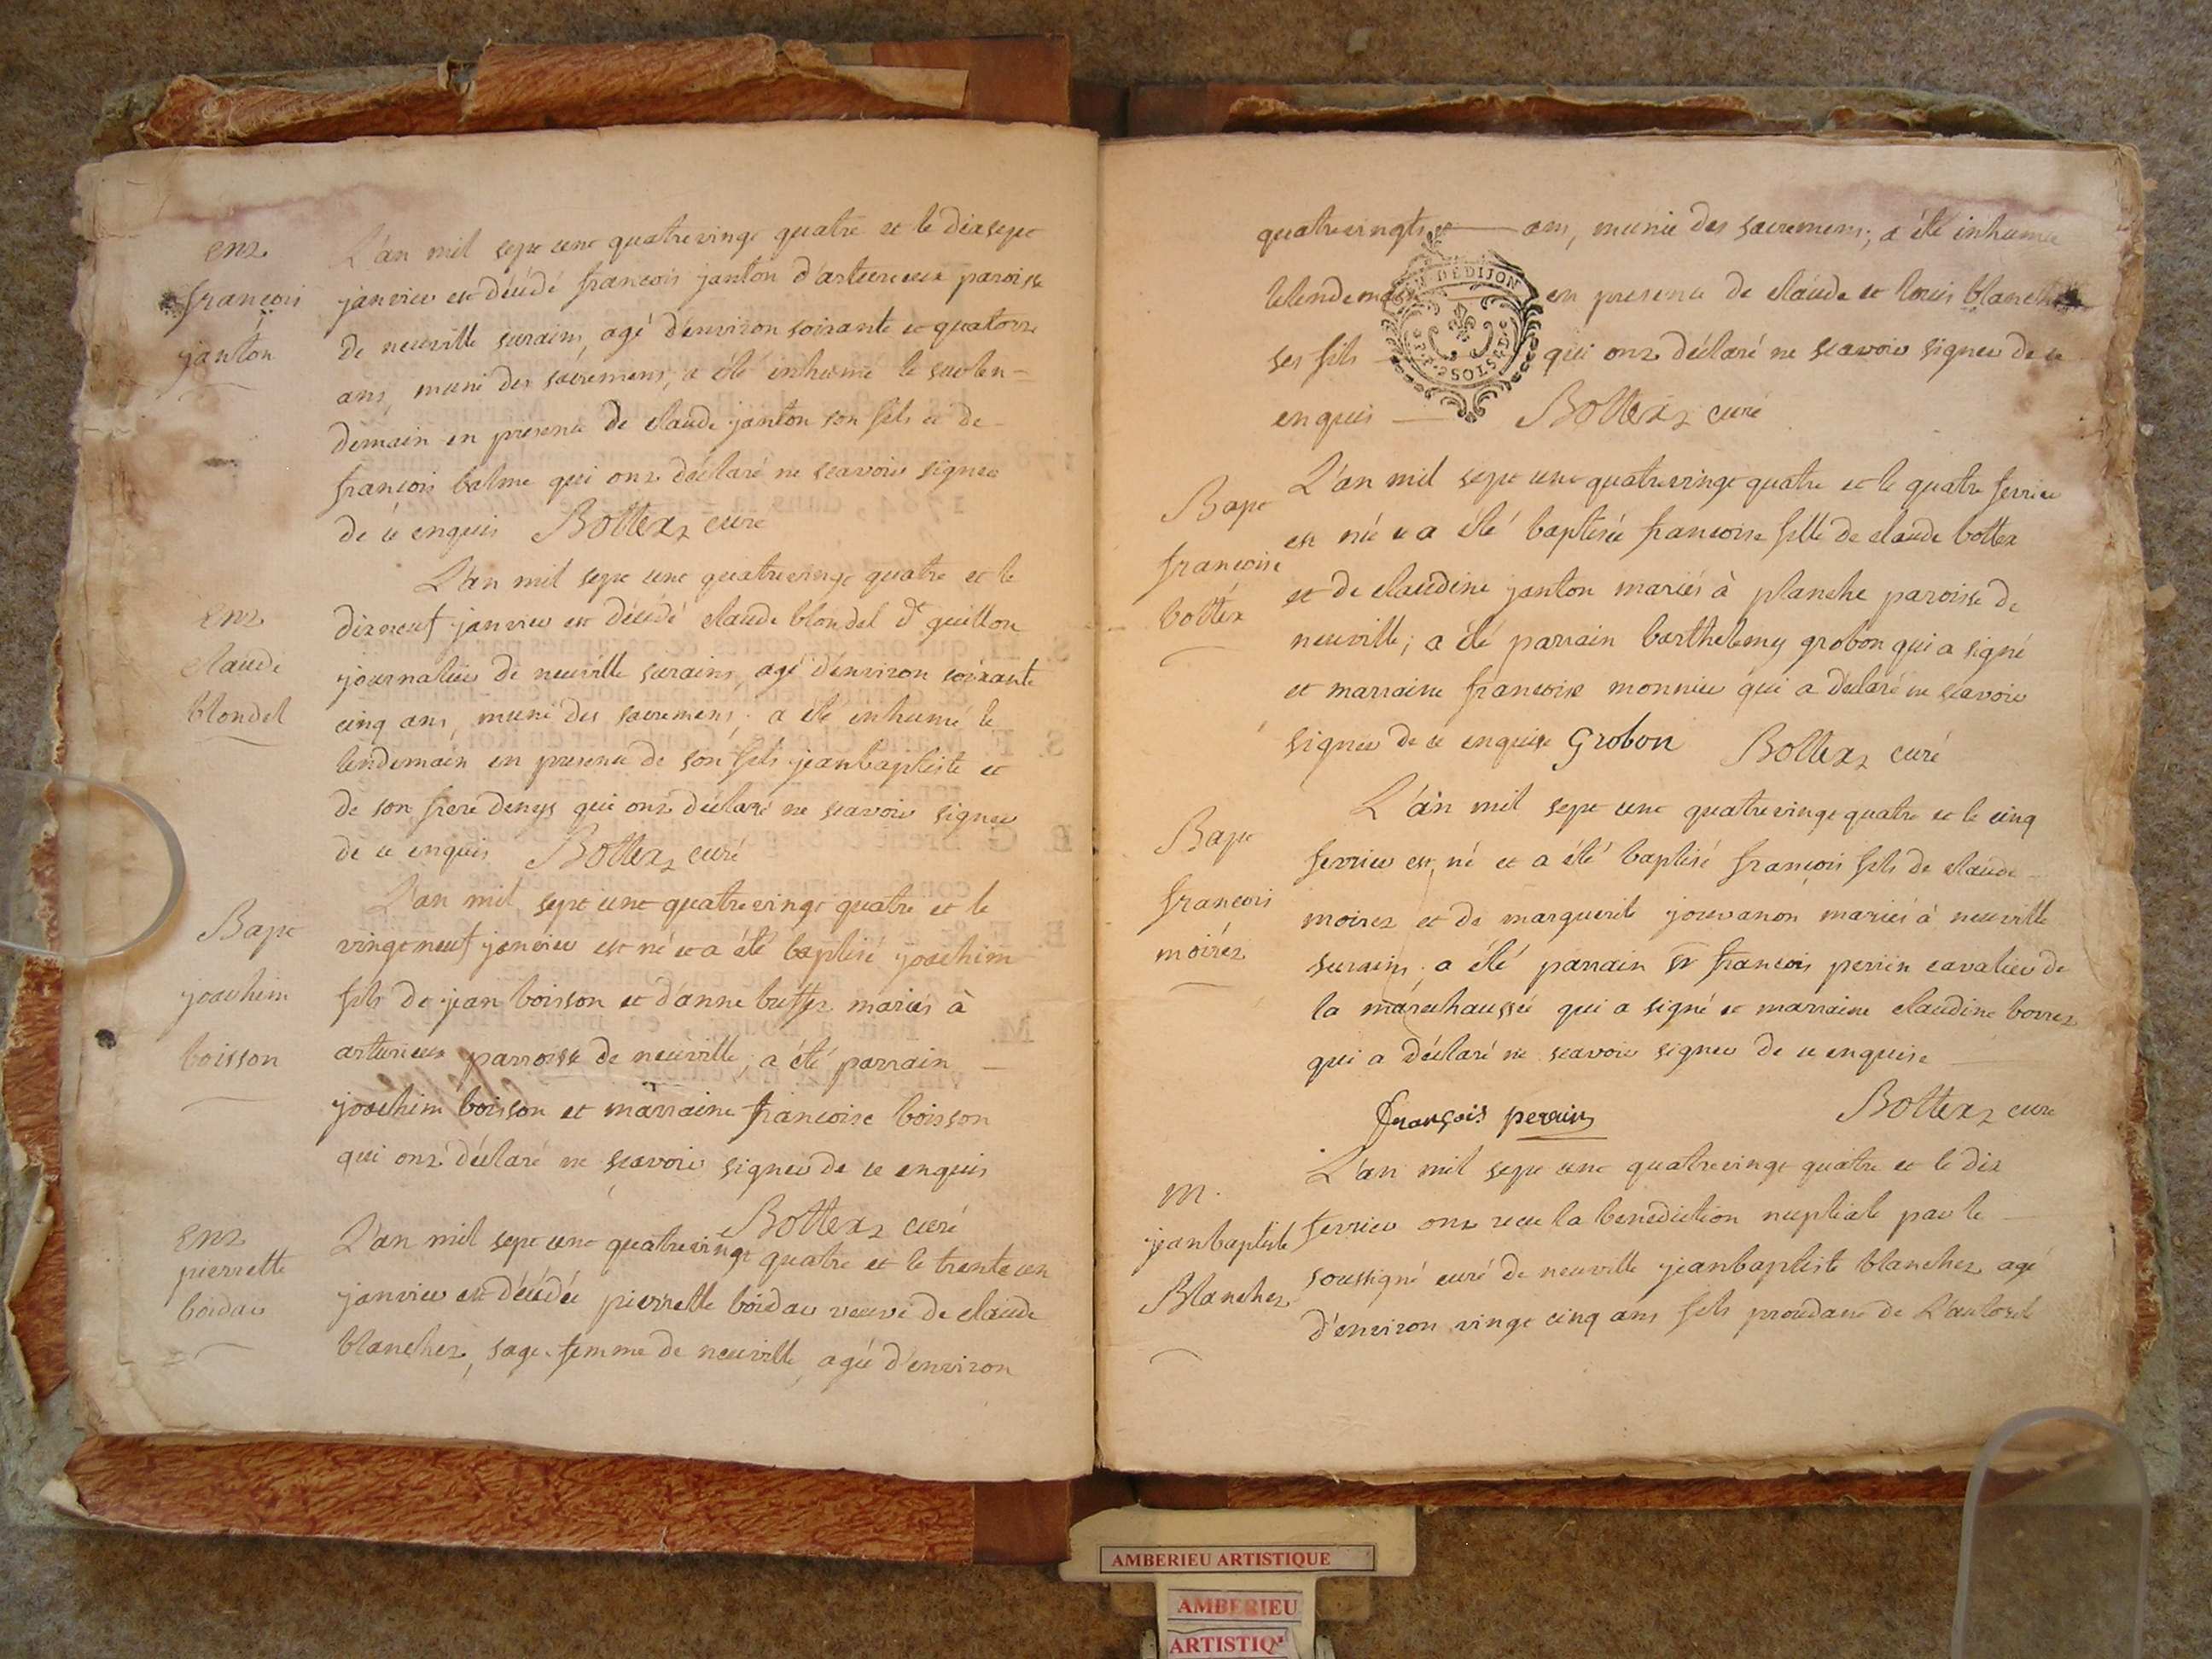 ent
françois
janton
L'an mil sept cent quatrevingt quatre et le dixsept
janvier est décédé françois janton d'arturieux paroisse
de neuville surains, agé d'environ soixante et quatorze
ans, muni des sacremens, a été inhumé le surlen-
demain en presence de claude janton son fils et de
françois balme qui ont déclaré ne scavoir signer
de ce enquis Bottex, curé
ent
claude
blondel
L'an mil sept cent quatrevingt quatre et le
dixneuf janvier est décédé claude blondel dt guillon
journalier de neuville surains, agé d'environ soixante
cinq ans, muni des sacremens. a été inhumé le
lendemain en presence de son fils jeanbaptiste et
de son frere denys qui ont déclaré ne scavoir signer
de ce enquis Bottex, curé
Bapt
joachim
boisson
L'an mil sept cent quatrevingt quatre et le
vingt neuf janvier est né et a été baptisé joachim
fils de jean boisson et d'anne buffet mariés à
arturieux parroisse de neuville; a été parrain
joachim boisson et marraine francoise boisson
qui ont déclaré ne scavoir signer de ce enquis
Bottex, curé
ent
pierrette
boidar
L'an mil sept cent quatrevingt quatre et le trente un
janvier est décédée pierrette boidar veuve de claude
blanchet, sage-femme de neuville, agée d'environ
quatrevingts ans, munie des sacremens; a été inhumée
lelendemain en presence de claude et louis blanchet
ses fils qui ont déclaré ne scavoir signer de ce
enquis Bottex, curé
DE DIJON
Bapt
françoise
bottex
L'an mil sept cent quatrevingt quatre et le quatre fevrier
est née et a été baptisée francoise fille de claude bottex
et de claudine janton mariés à planche paroisse de
neuville; a été parrain barthelemy grobon qui a signé
et marraine francoise monnier qui a déclaré ne scavoir
signer de ce enquise Grobon Bottex, curé
Bapt
françois
moiret
L'an mil sept cent quatrevingt quatre et le cinq
fevrier est né et a été baptisé françois fils de claude
moiret et de marguerite jouvanon mariés à neuville
surains. a été parrain sr françois perrin cavalier de
la maréchaussée qui a signé et marraine claudine borret
qui a déclaré ne scavoir signer de ce enquise
françois perrin Bottex, curé
m.
jeanbaptiste
Blanchet
L'an mil sept cent quatrevingt quatre et le dix
fevrier ont recu la benediction nuptiale par le
soussigné curé de neuville jeanbaptiste blanchet agé
d'environ vingt cinq ans fils procedant de l'autorité
AMBERIEU ARTISTIQUE
AMBERIEU
ARTISTIQ